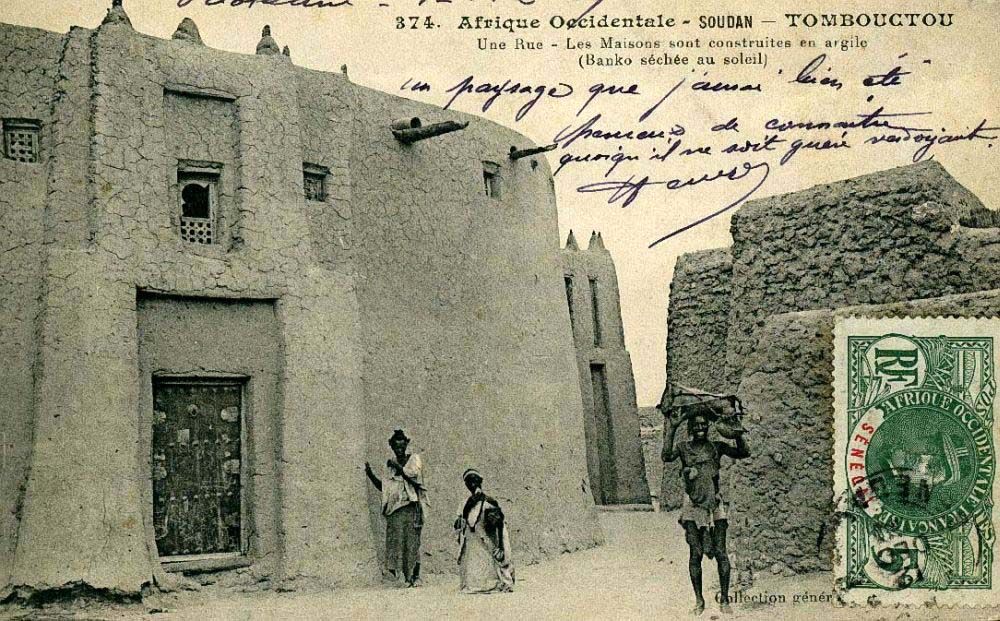 374. Afrique Occidentale - SOUDAN - TOMBOUCTOU
Une Rue - Les Maisons sont construites en argile
(Banko séchée au soleil)
un paysage que j'aurai bien été
heureux de connaitre
quoiqu'il ne soit guère verdoyant.
RF
AFRIQUE OCCIDENTALE FRANÇAISE
SÉNÉGAL
POSTES
5
Collection génér